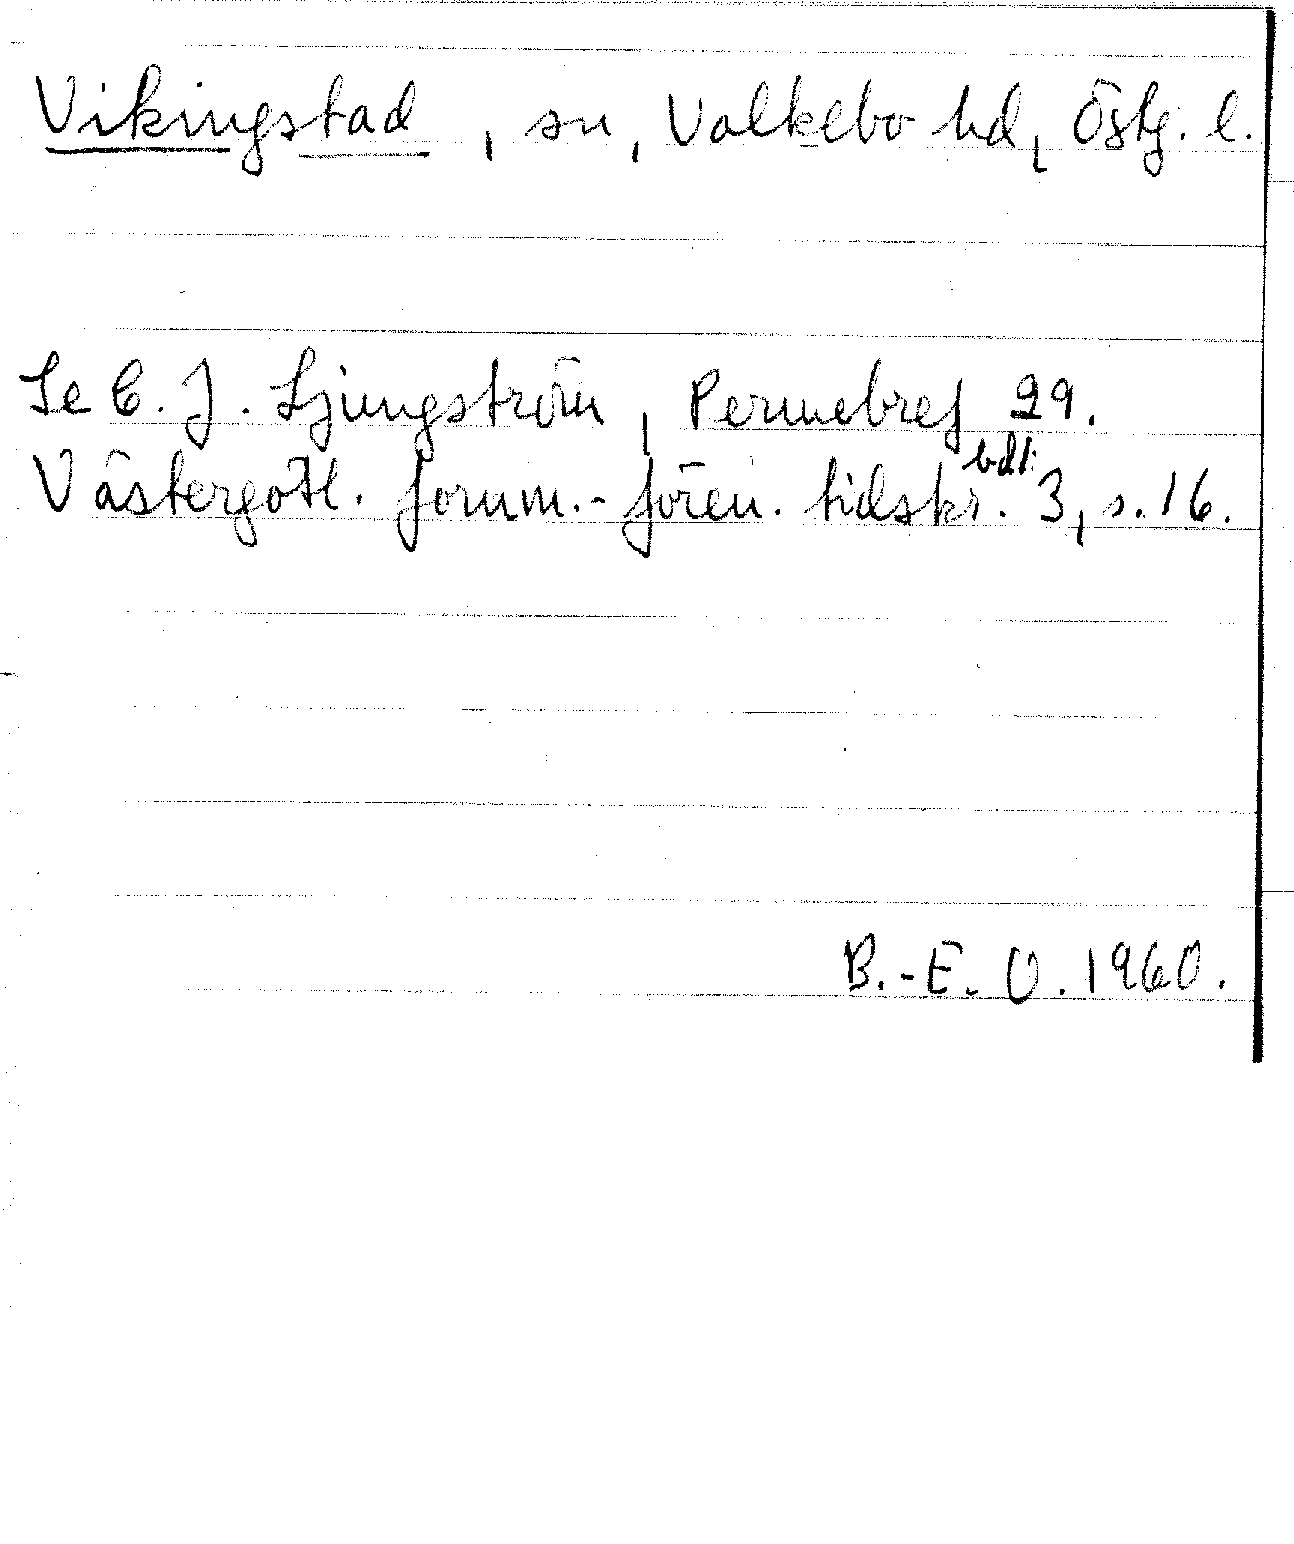 Vikingstad, sn, Valkebo hd, Östg. l.
Se C. J. Ljungström, Permebref 29.
Västergötl. fornm.-fören. tidskr. bd 1:3, s. 16.
B.-E. O. 1960.